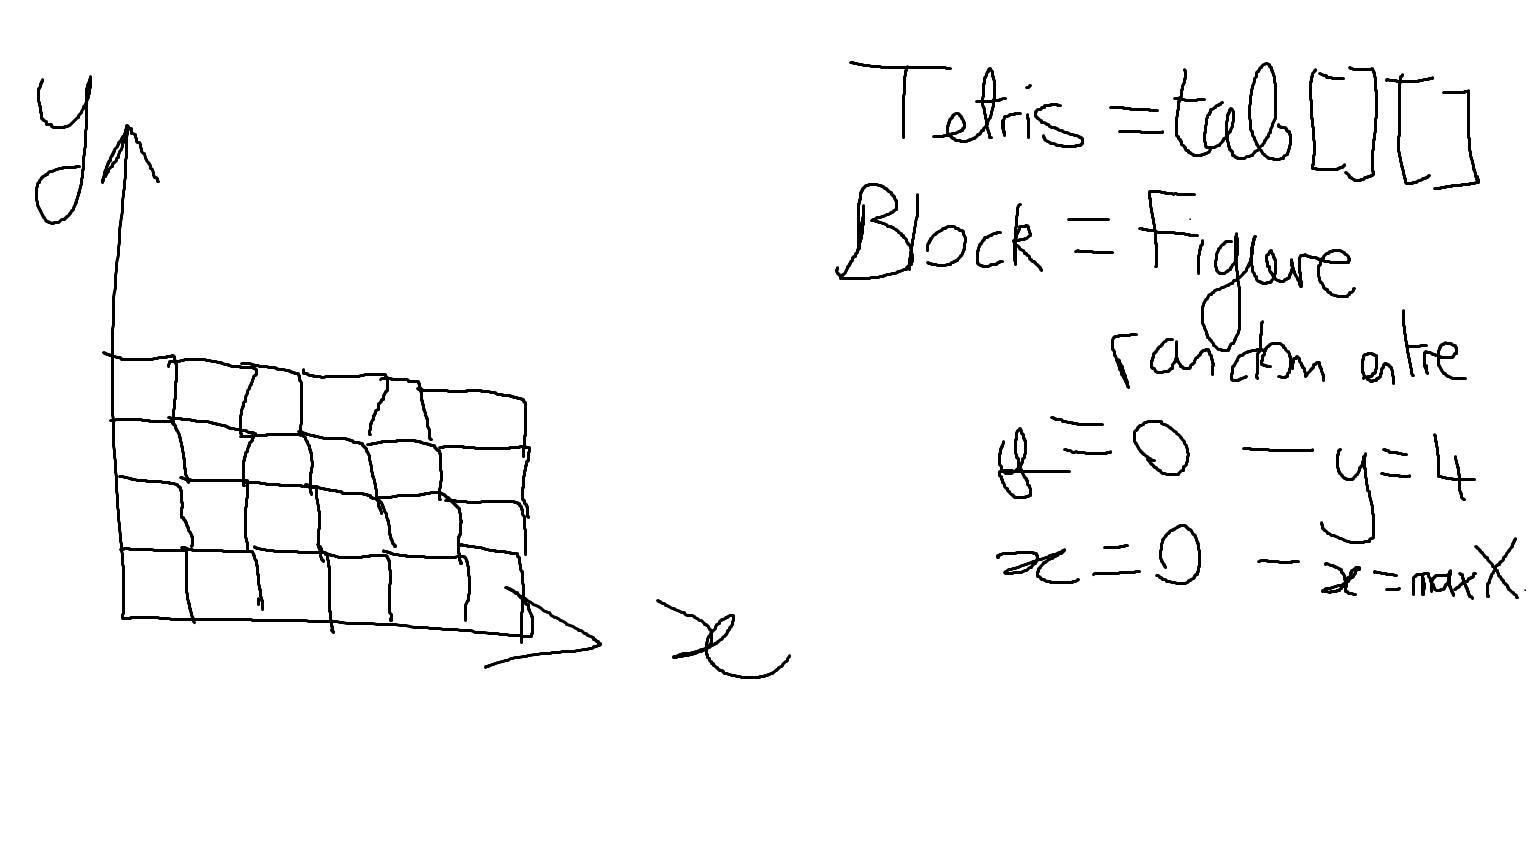 y
Tetris = tab[][]
Block = Figure
random entre
y = 0 — y = 4
x = 0 - x = maxX
x